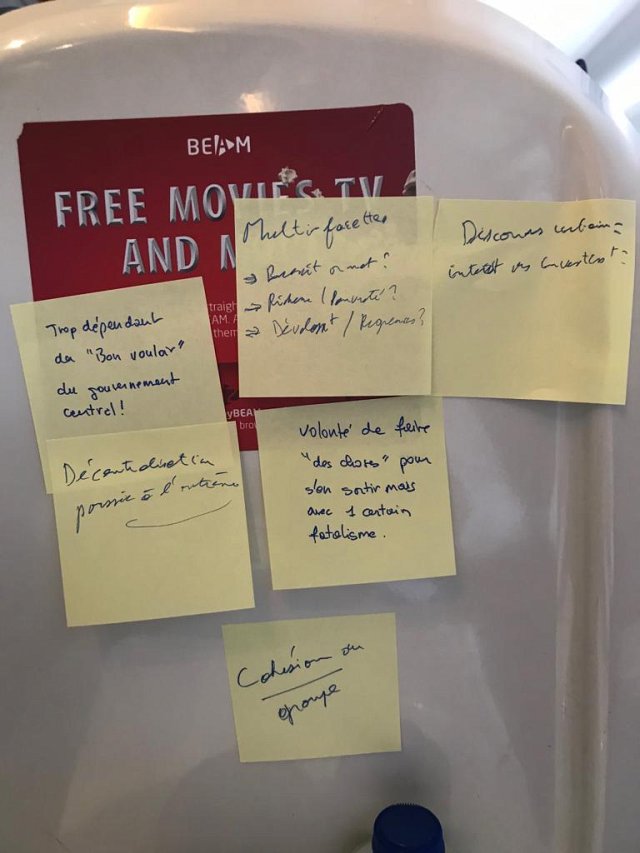 BEAM
FREE MOVIES TV
AND M
traigh
AM. A
them
yBEAM
brow
Multi facettes
⇒ ou mot?
⇒ Richesse / Pauvreté?
⇒ Dévelopt /
Discours urbain =
intérêt
Trop dépendant
du "Bon vouloir"
du gouvernement
central!
Décentralisation
poussée à l'extrême
volonté de faire
"des choses" pour
s'en sortir mais
avec 1 certain
fatalisme.
Cohésion du
groupe